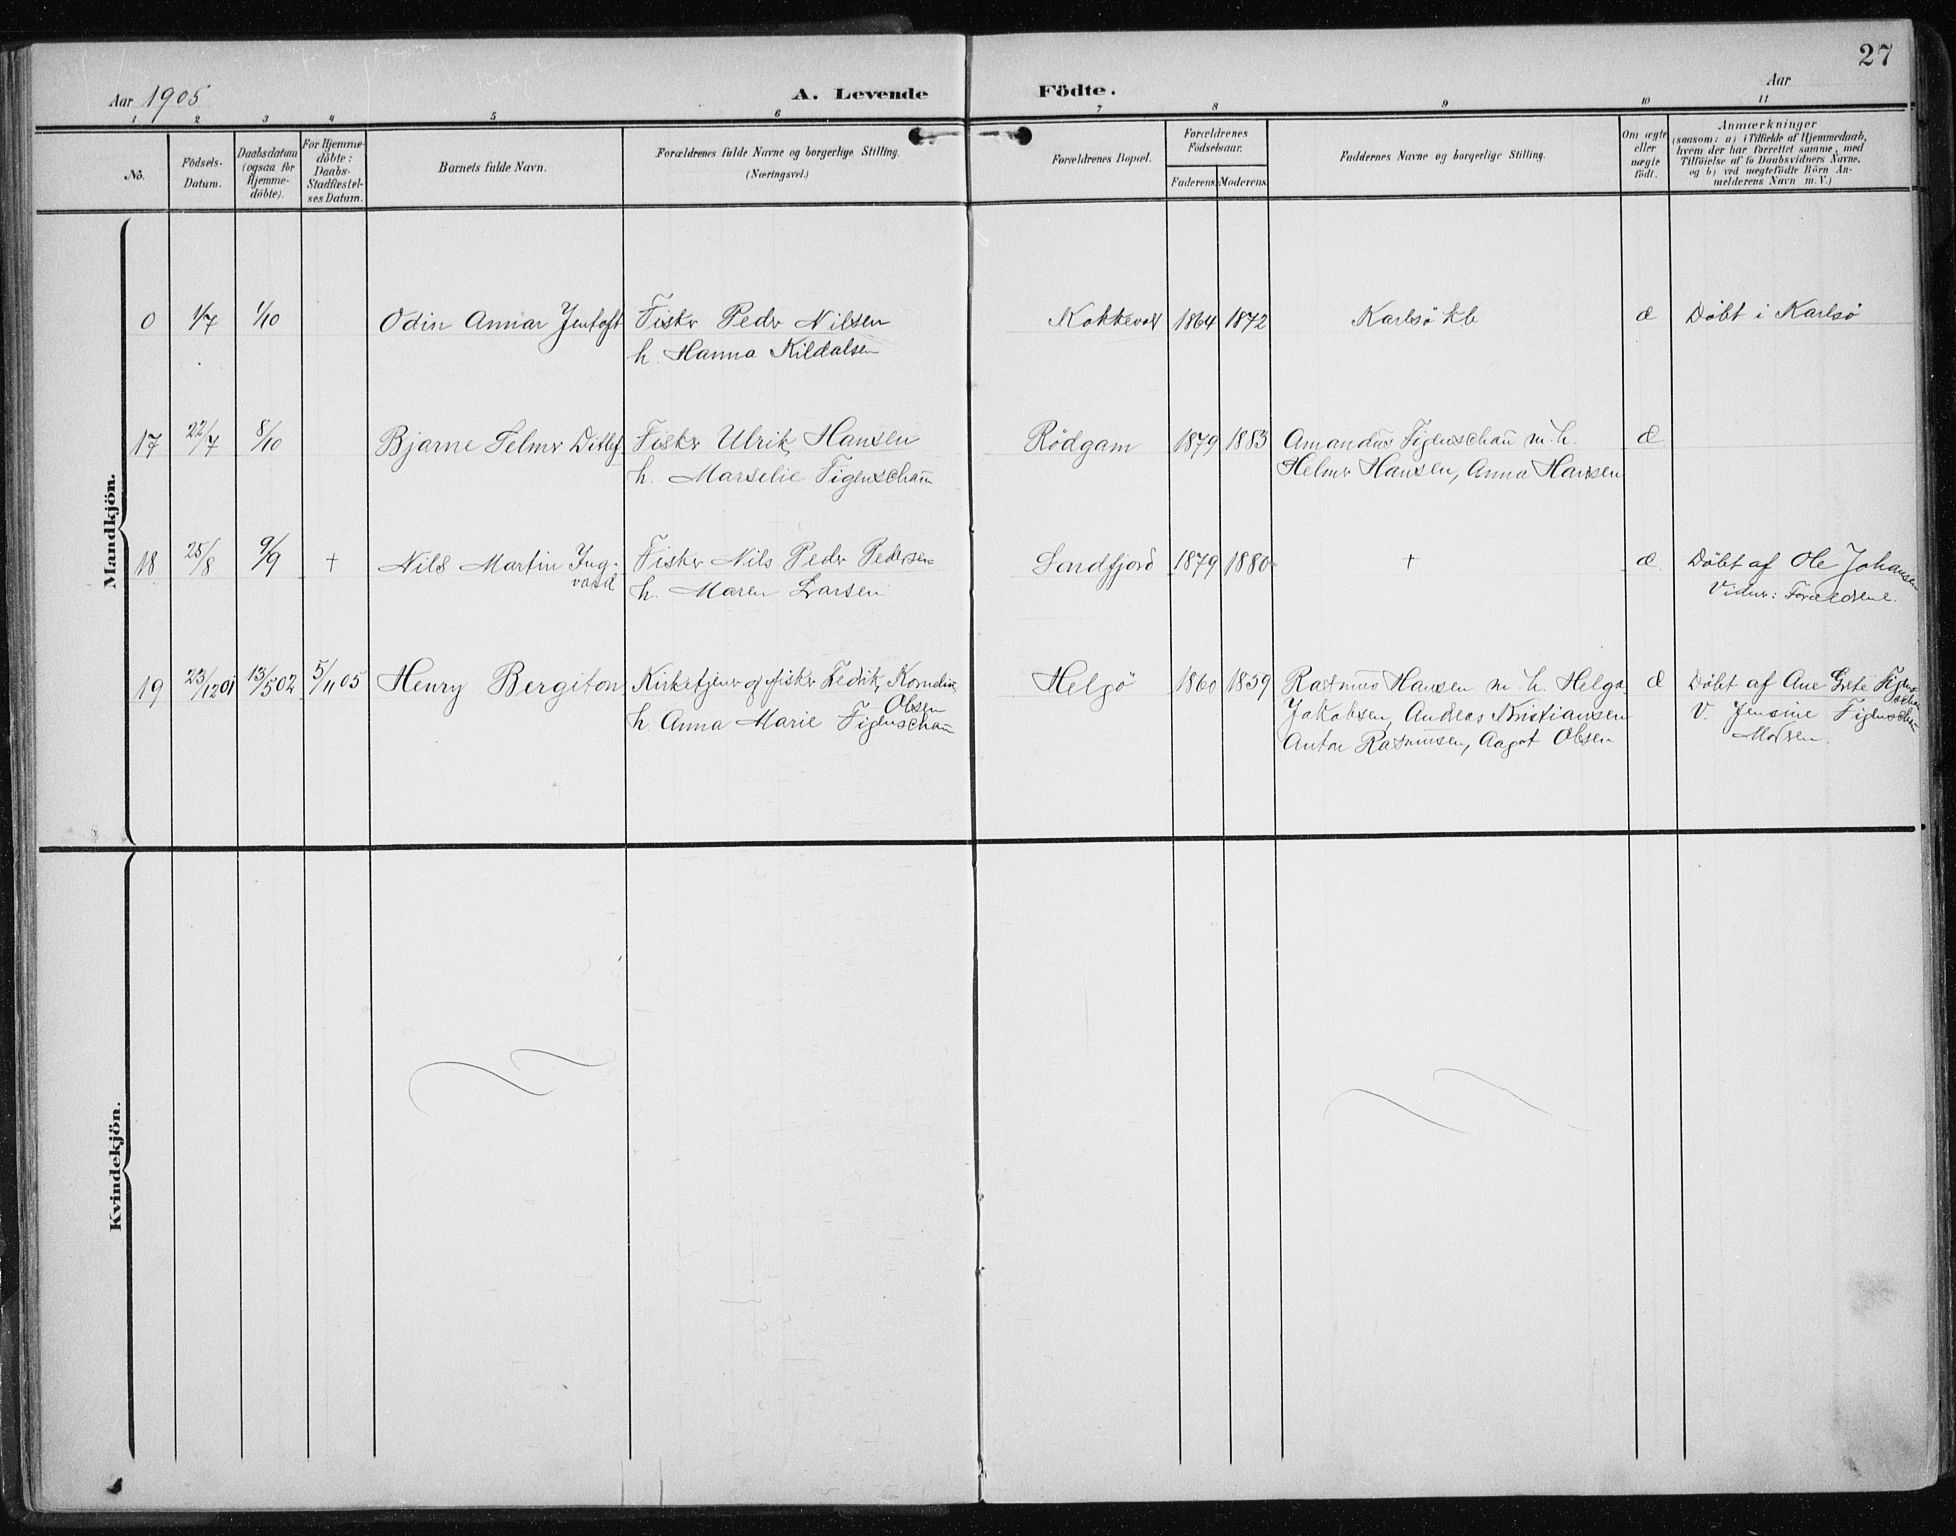 27
Aar 1905
A. Levende Födte.
Aar
1 2 3 4 5 6 7 8 9 10 11
No.
Födsels-
Datum.
Daabsdatum
(ogsaa for
Hjemme-
döbte).
For Hjemme-
döbte:
Daabs-
Stadfæstel-
ses Datum.
Barnets fulde Navn.
Forældrenes fulde Navne og borgerlige Stilling.
(Næringsvei.)
Forældrenes Bopæl.
Forældrenes
Födselsaar.
Faderens. Moderens.
Faddernes Navne og borgerlige Stilling.
Om ægte
eller
uægte
født.
Anmærkninger
(saasom: a) i Tilfælde af Hjemmedaab,
hvem der har forrettet samme, med
Tilföielse af to Daabsvidners Navne,
og b) ved uægtefödte Börn An-
melderens Navn m. V.)
Mandkjön.
0 1/7 1/10 Odin Annar Jentoft Fisker Peder Nilsen Kokkevol 1864 1872 Karlsö kb æ Döbt i Karlsö
h. Hanna Kildalsen
17 22/7 8/10 Bjarne Selmer Ditlef Fisker Ulrik Hansen Rödgam 1879 1883 Amandus Figenschau m. h. æ
h. Marselie Figenschau Helmer Hansen, Anna Hansen
18 25/8 9/9 + Nils Martin Ing- Fisker Nils Peder Pedersen Sandfjord 1879 1880 + æ Döbt af Ole Johansen
vald h. Maren Larsen Vidner: Forældrene.
19 23/12 01 13/5 02 5/11 05 Henry Bergiton Kirketjener og fisker Fedrik Helgö 1860 1859 Rasmus Hansen m. h. Helga æ Döbt af Ane Grete Figen-
schau
Olsen
h. Anna Marie Figenschau Jakobsen, Andreas Kristiansen V. Jensine Figenschau
Anton Rasmussen, Aagot Olsen Moderen.
Kvindekjön.